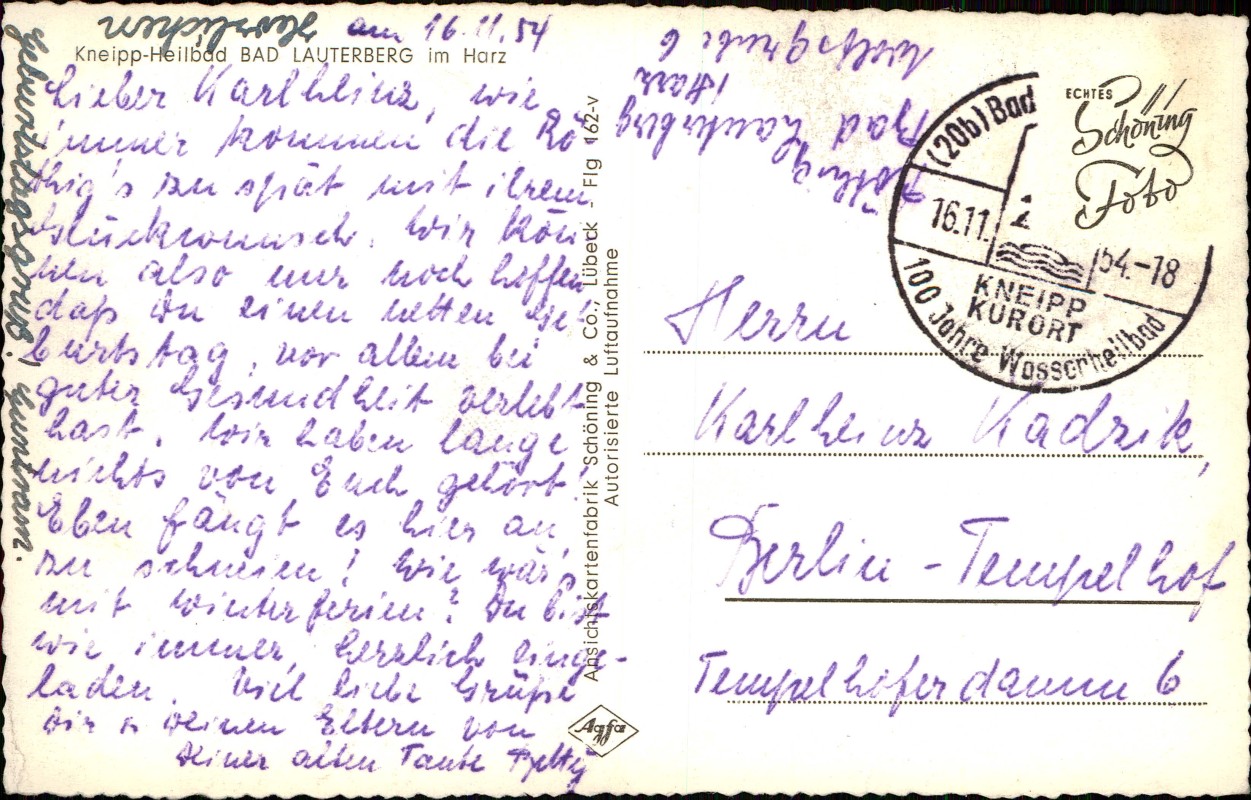 am 16.11.54
Kneipp-Heilbad BAD LAUTERBERG im Harz
Lieber Karlheinz, wie
immer kommen die Rö-
thig's zu spät mit ihrem
Glückwunsch. Wir kön
nen also nur noch hoffen
daß Du einen netten Ge-
burtstag, vor allem bei
guter Gesundheit verlebt
hast. Wir haben lange
nichts von Euch gehört!
Eben fängt es hier an
zu schneien! Wie wär's
mit Winterferien? Du bist
wie immer, herzlich einge-
laden. Viel liebe Grüße
Dir u Deinen Eltern von
Deiner alten Tante Betty
Herzlichen
Geburtstagsgruß! Guntram.
Ansichtskartenfabrik Schöning & Co., Lübeck - Flg 162-v
Autorisierte Luftaufnahme
Agfa
Röthig
Bad Lauterberg
Harz
Wolfsgrube 6
(20b) Bad
16.11.54.-18
KNEIPP
KURORT
100 Jahre Wasserheilbad
ECHTES
Schöning
Foto
Herrn
Karlheinz Kadzik,
Berlin - Tempelhof
Tempelhoferdamm 6